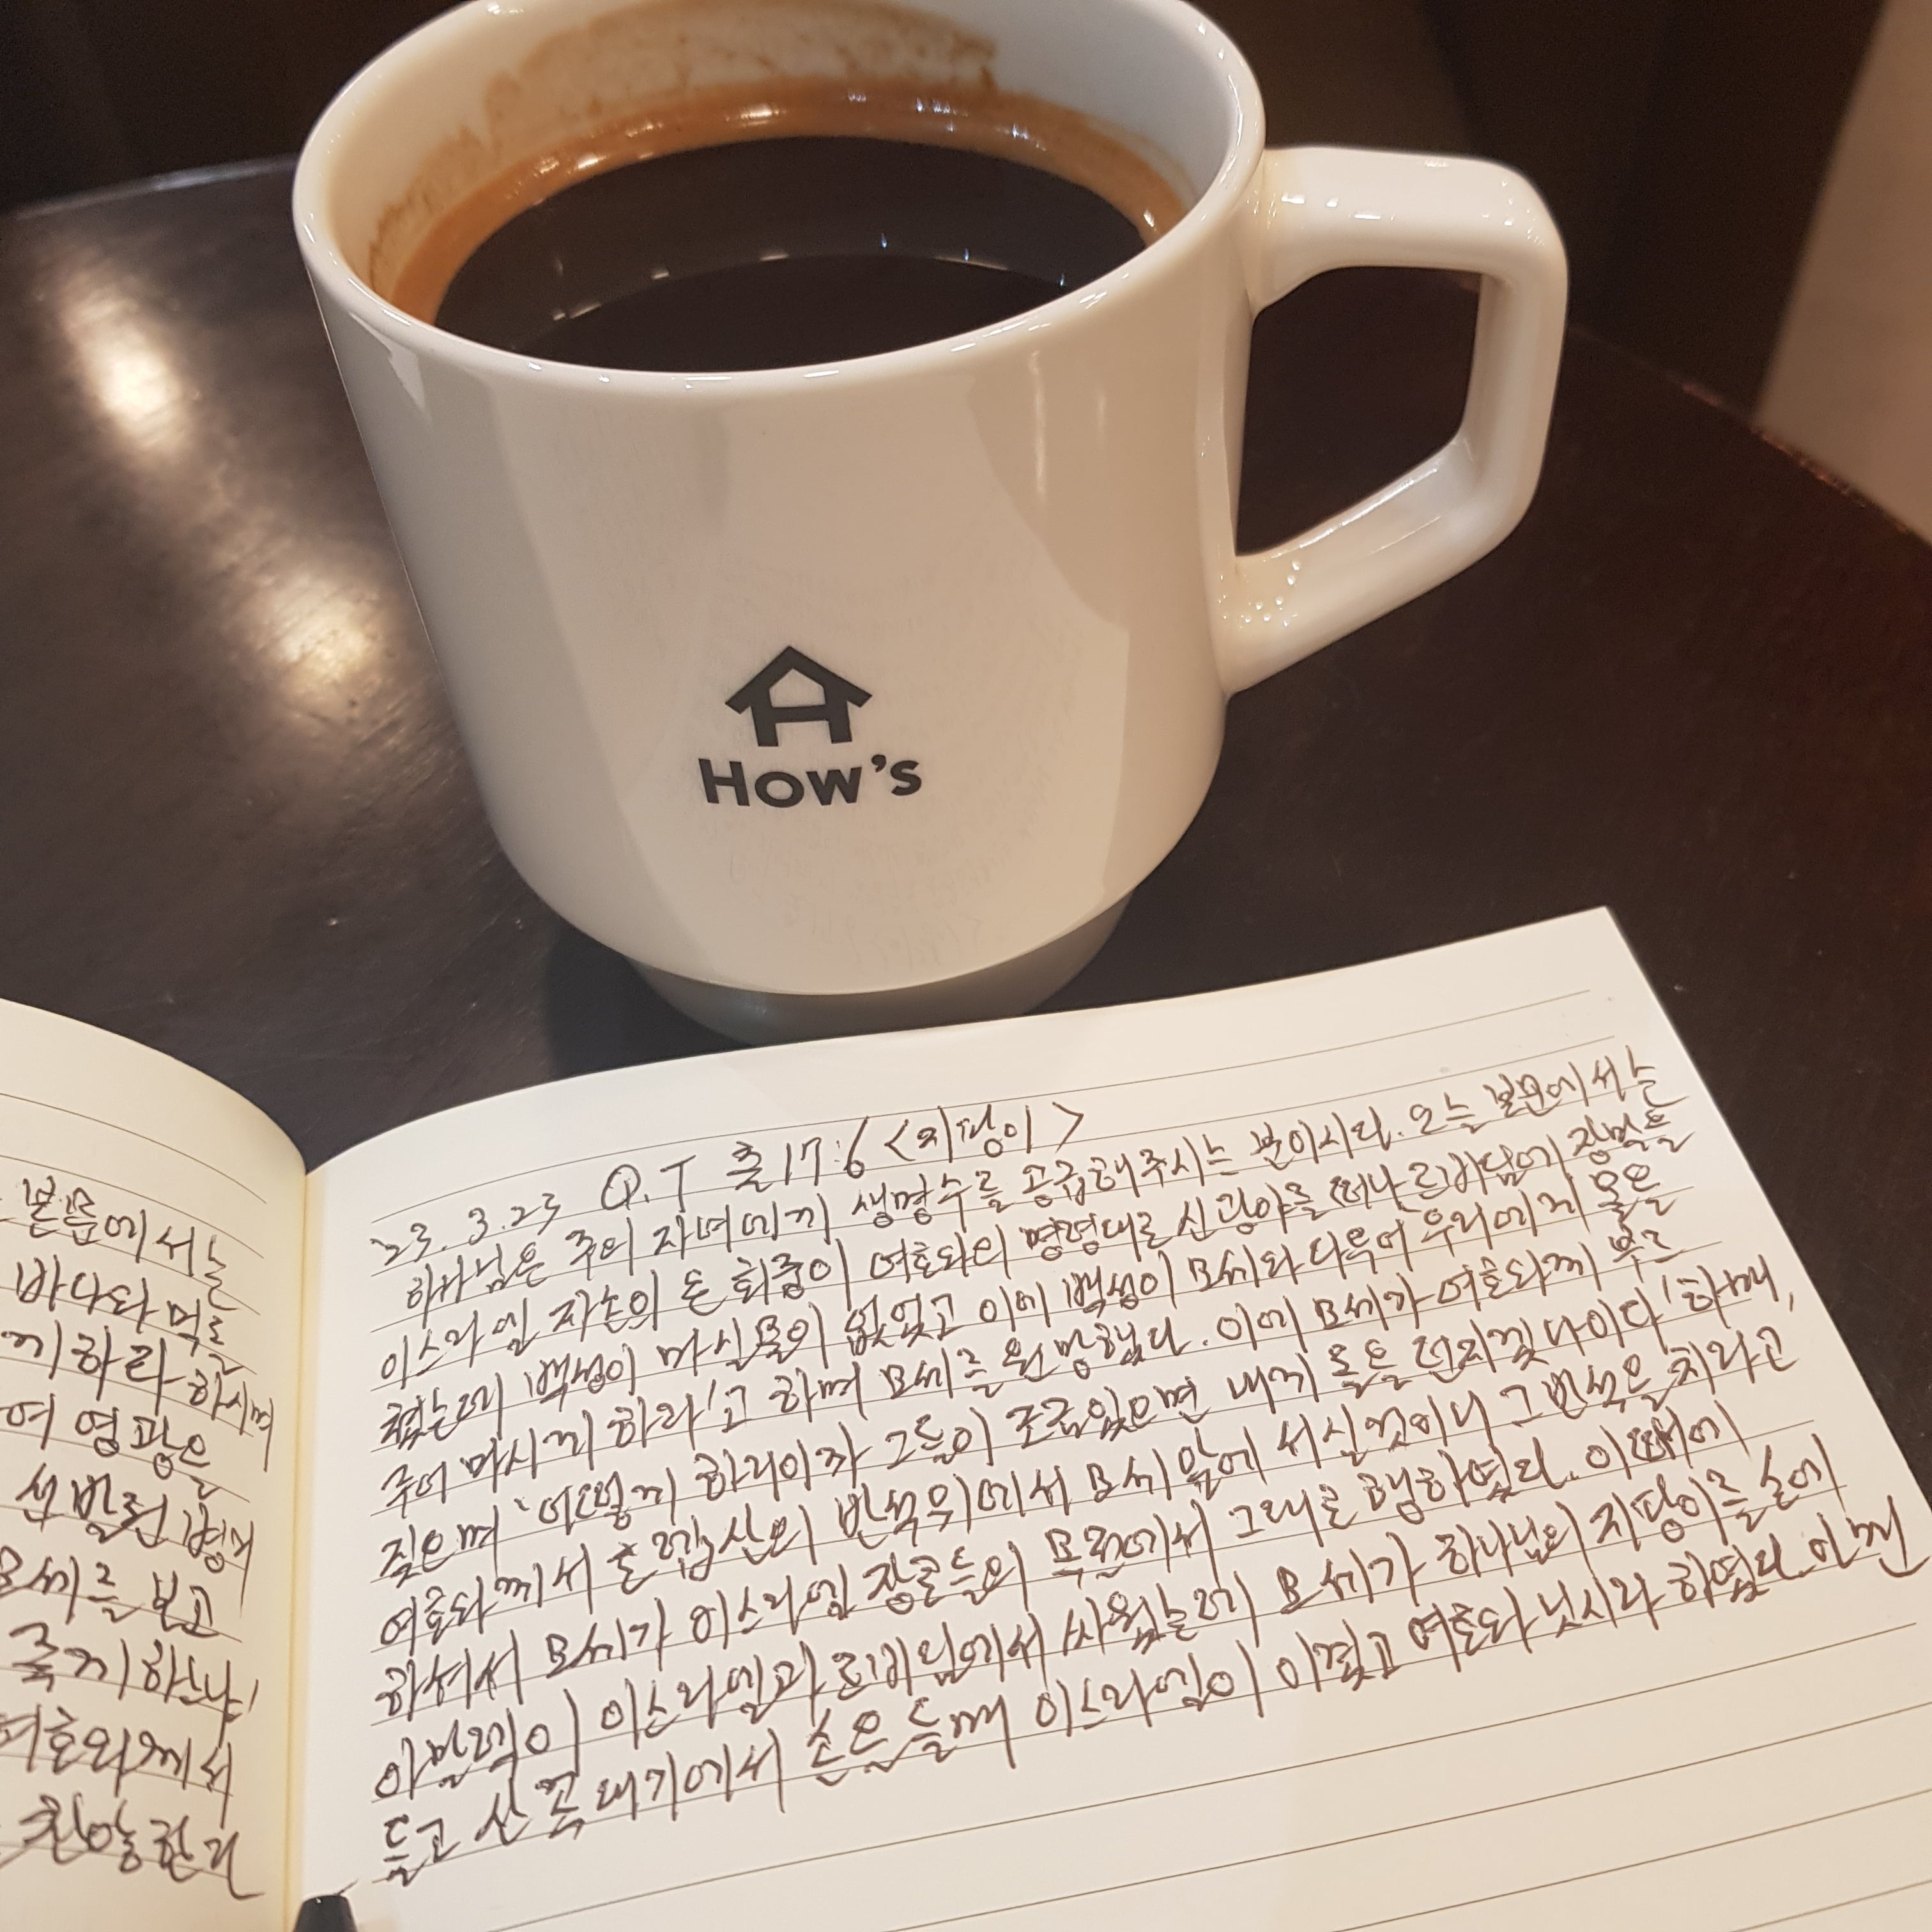 How's
본문에서는
바다와 먹는
끼하라 하시며
여 영광은
모세를 보고
여호와께서
'23. 3. 23 Q.T 출17:6 <지팡이>
하나님은 주의 자녀에게 생명수를 공급해주시는 분이시다. 오늘 본문에서는
이스라엘 자손의 온 회중이 여호와의 명령대로 신 광야를 떠나 르비딤에 장막을
쳤는데 백성이 마실 물이 없었고 이에 백성이 모세와 다투어 '우리에게 물을
주어 마시게 하라'고 하며 모세를 원망했다. 이에 모세가 여호와께 부르
짖으며 '어떻게 하리이까 그들이 조금있으면 내게 돌을 던지겠나이다' 하매,
여호와께서 호렙산의 반석위에서 모세 앞에 서실것이니 그 반석을 치라고
하셔서 모세가 이스라엘 장로들의 목전에서 그대로 행하였다. 이때에
아말렉이 이스라엘과 르비딤에서 싸웠는데 모세가 하나님의 지팡이를 손에
들고 산꼭대기에서 손을 들때 이스라엘이 이겼고 여호와 닛시라 하였다.